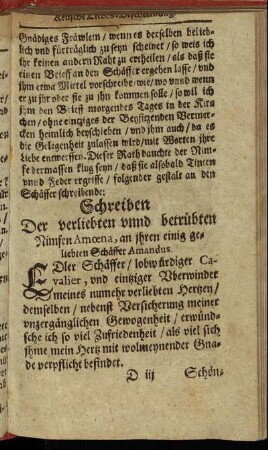 Keusche Liebes-Beschreibung
Gnädiges Fräwlein / wenn es derselben belieblich
vnd fürträglich zu seyn scheinet / so weis ich
ihr keinen andern Raht zu ertheilen / als daß sie
einen Brieff an den Schäffer ergehen lasse / vnd
ihm etwa Mittel vorschreibe / wie / wo vnnd wenn
er zu jhr oder sie zu jhn kommen solle / so wil ich
ihm den Brieff morgendes Tages in der Kirchen
/ ohne einziges der Beysitzenden Vermercken
heimlich beyschieben / vnd jhm auch / da es
die Gelegenheit zulassen wird / mit Worten jhre
Liebe entwerffen. Dieser Rath dauchte der Nimfe
dermassen klug seyn / daß sie alsobald Tinten
vnnd Feder ergriffe / folgender gestalt an den
Schäffer schreibende:
Schreiben
Der verliebten vnnd betrübten
Nümfen Amœna, an jhren einig geliebten
Schäffer Amandus.
EDler Schäffer / lobwürdiger Cavalier
, vnd eintziger Vberwinder
meines numehr verliebten Hertzen /
demselben / nebenst Versicherung meiner
vnzergänglichen Gewogenheit / erwündsche
ich so viel Zufriedenheit / als viel sich
jhme mein Hertz mit wolmeynender Gnade
verpflicht befindet.
D iij Schön-